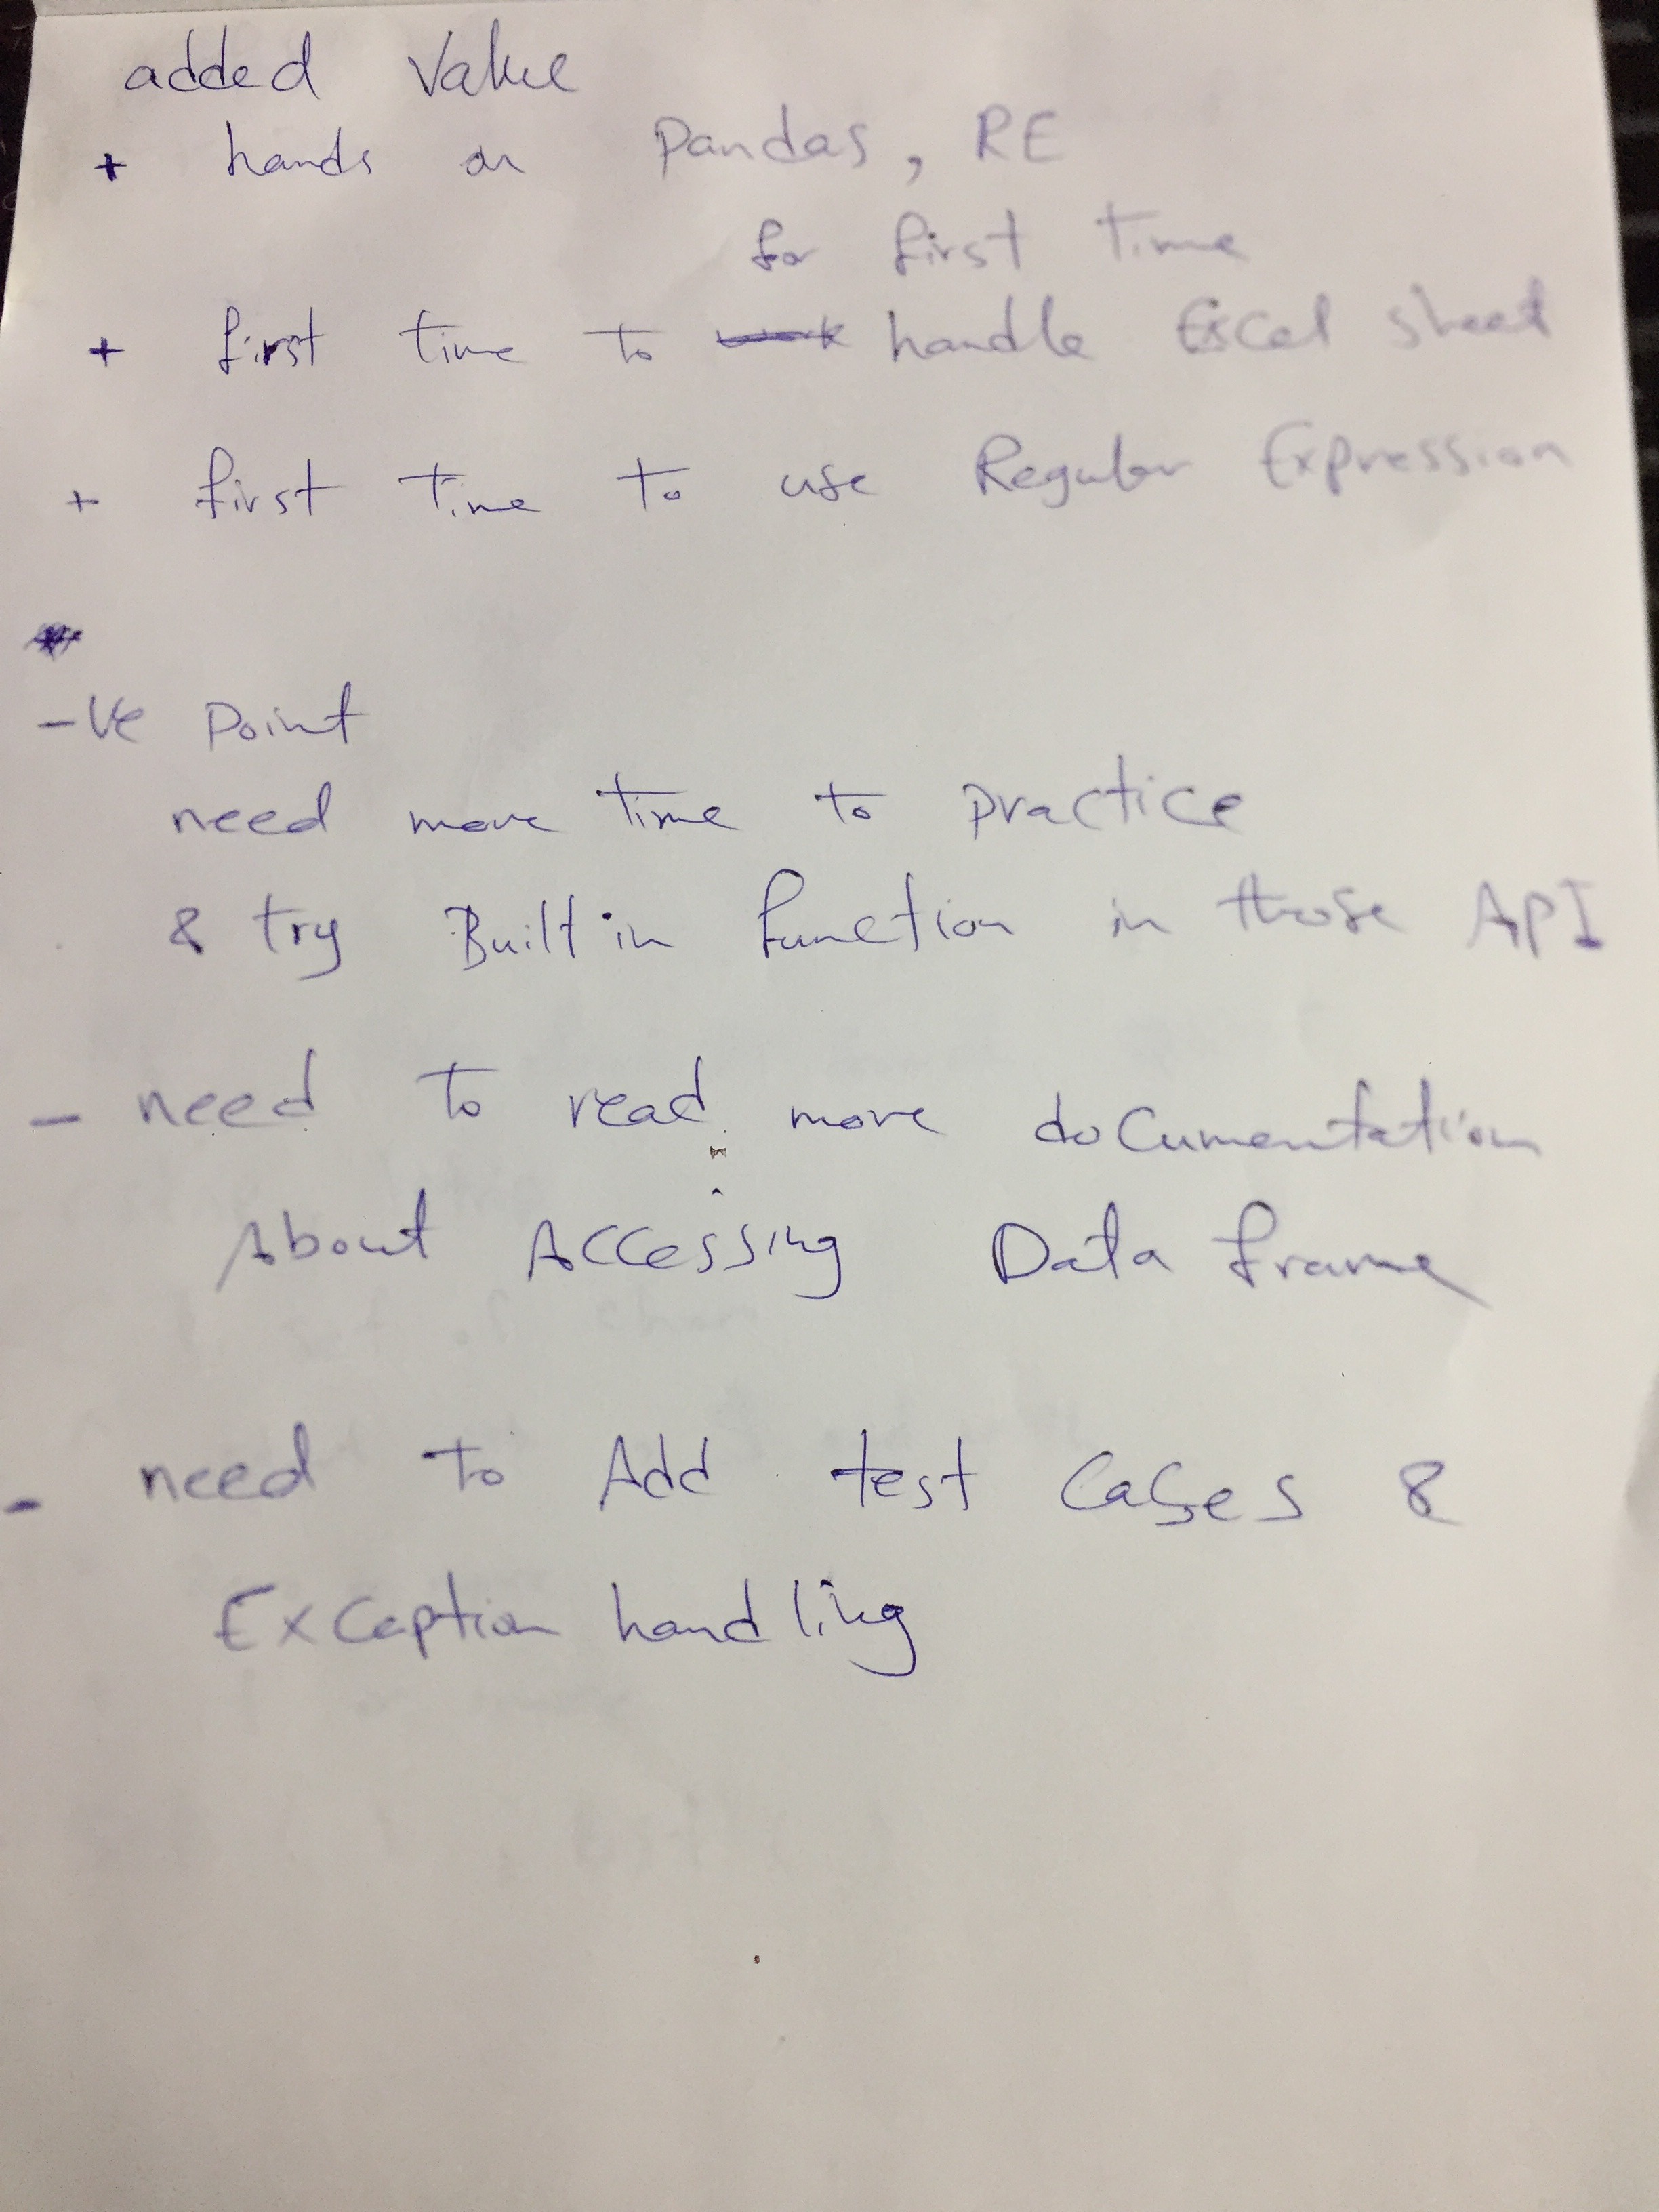 added Value
+ hands on Pandas, RE
for first Time
+ first time to work handle Excel sheet
+ first Time to use Regular Expression
-ve Point
need more time to practice
& try Built in function in those API
- need To read more documentation
About Accessing Data frame
- need To Add test Cases &
Exception handling